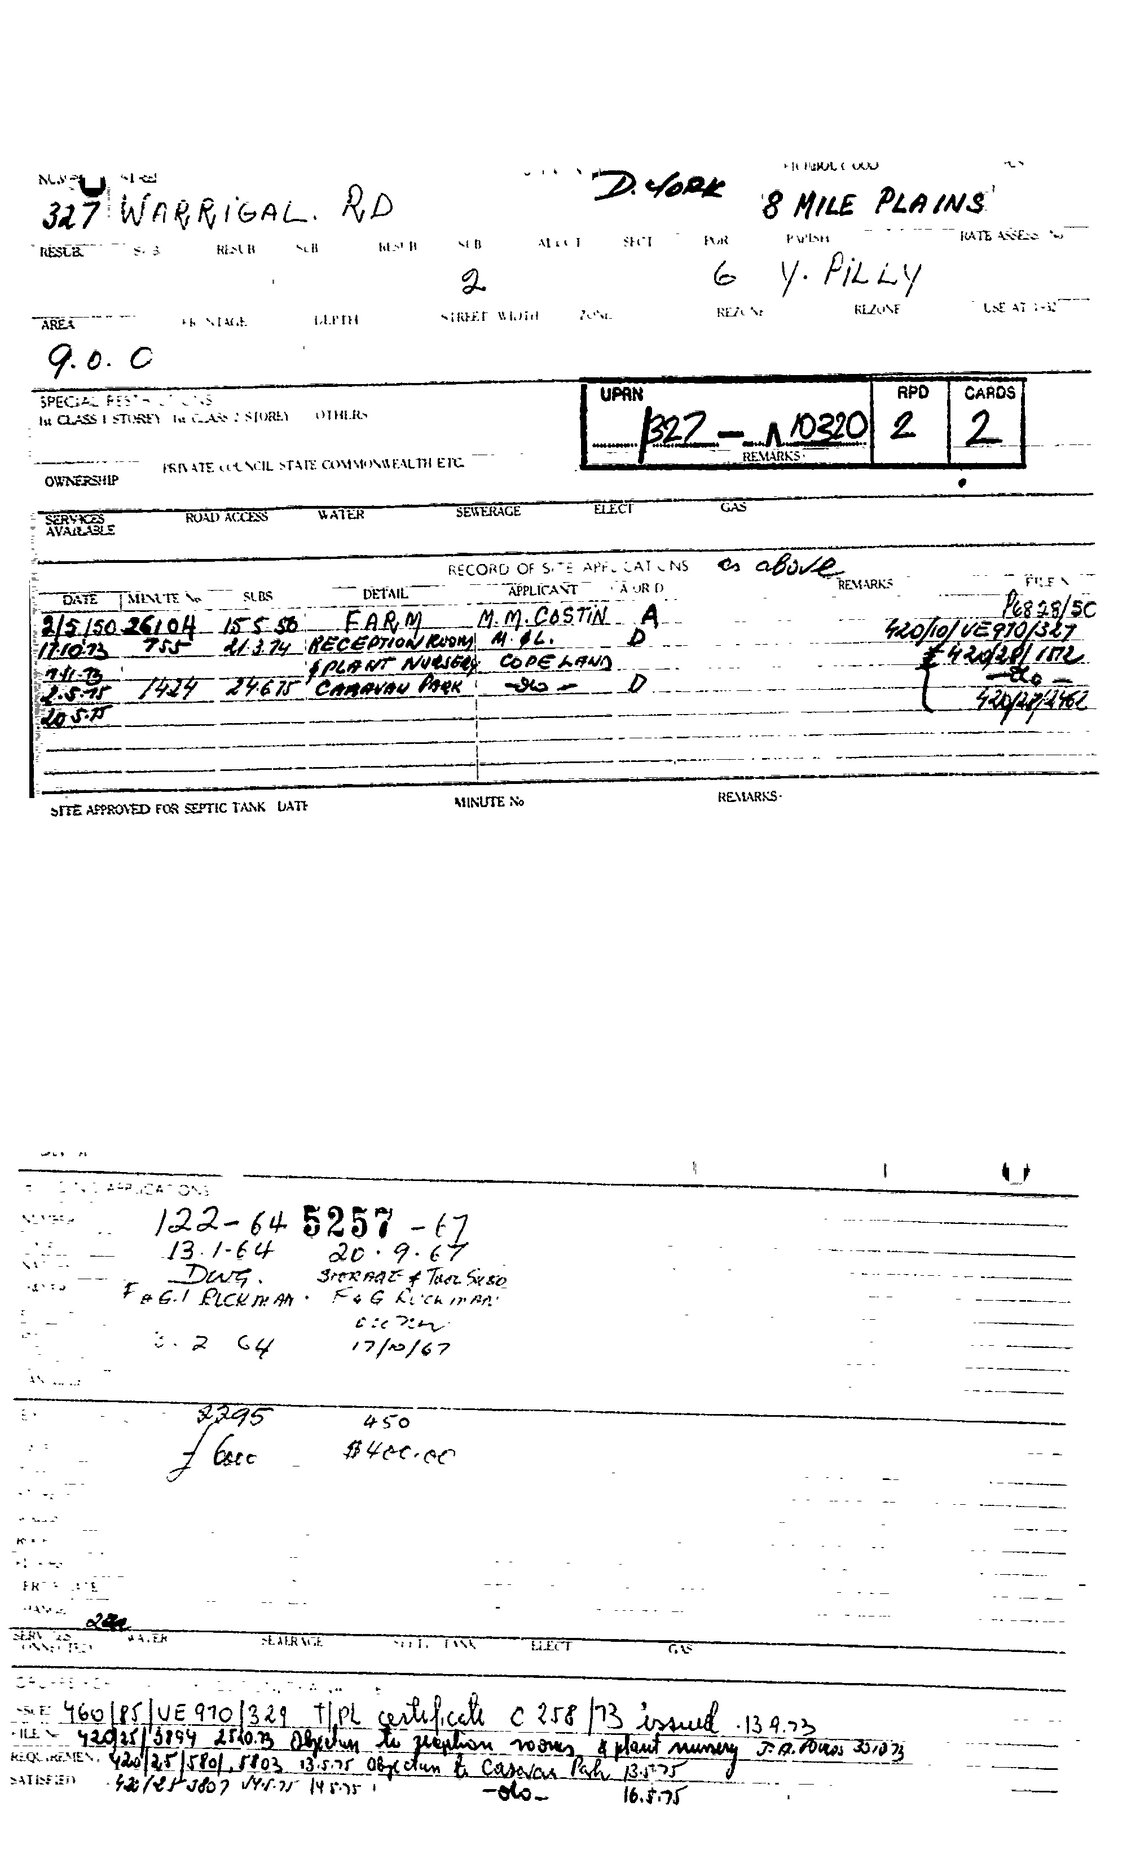 D. YORK
327 WARRIGAL. RD '8 MILE PLAINS'
RESUB. SUB RESUB SUB RESUB SUB ALLOT SECT POR PARISH RATE ASSESS No
2 6 Y. PILLY
AREA FRONTAGE DEPTH STREET WIDTH ZONE REZONE REZONE USE AT
9. 0. 0
SPECIAL RESTRICTIONS
1st CLASS 1 STOREY 1st CLASS 2 STOREY OTHERS
UPRN RPD CARDS
/327 - 10320 2 2
REMARKS
PRIVATE COUNCIL STATE COMMONWEALTH ETC.
OWNERSHIP
SERVICES AVAILABLE ROAD ACCESS WATER SEWERAGE ELECT GAS
RECORD OF SITE APPLICATIONS as above
DATE MINUTE No SUBS DETAIL APPLICANT A OR D REMARKS FILE No
2/5/50 26104 15 5 50 FARM M. M. COSTIN A P6828/50
17.10.73 755 21.3.74 RECEPTION ROOM M. & L. D 420/10/VE970/327
7.11.73 & PLANT NURSERY COPELAND & 420/28/1572
2.5.75 1424 24.6.75 CARAVAN PARK -do- D -do-
20.5.75 420/28/2462
SITE APPROVED FOR SEPTIC TANK DATE MINUTE No REMARKS
APPLICATIONS
NUMBER 122-64 5257-67
13.1-64 20.9.67
DWG. STORAGE & TOOL SHED
F & G.I RUCKMAN. F & G RUCKMAN
2 64 17/10/67
2295 450
£6000 $400.00
SERVICES CONNECTED WATER SEWERAGE SEPTIC TANK ELECT GAS
460/85/VE970/329 T/PL certificate C 258/73 issued 13.9.73
FILE No 420/25/3894 25.10.73 Objection to reception rooms & plant nursery
REQUIREMENT 420/25/5801, 5803 13.5.75 Objection to Caravan Park 13.5.75
SATISFIED 420/25/5807 14.5.75 14.5.75 -do- 16.5.75